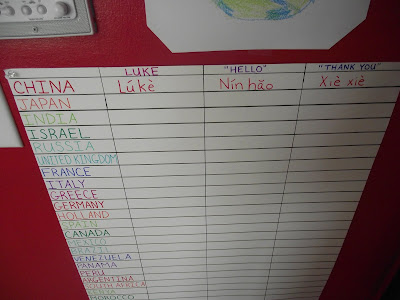 LUKE "HELLO" "THANK YOU"
CHINA Lúkè Nín hǎo Xiè xiè
JAPAN
INDIA
ISRAEL
RUSSIA
UNITED KINGDOM
FRANCE
ITALY
GREECE
GERMANY
HOLLAND
SPAIN
CANADA
MEXICO
BRAZIL
VENEZUELA
PANAMA
PERU
ARGENTINA
SOUTH AFRICA
MOROCCO